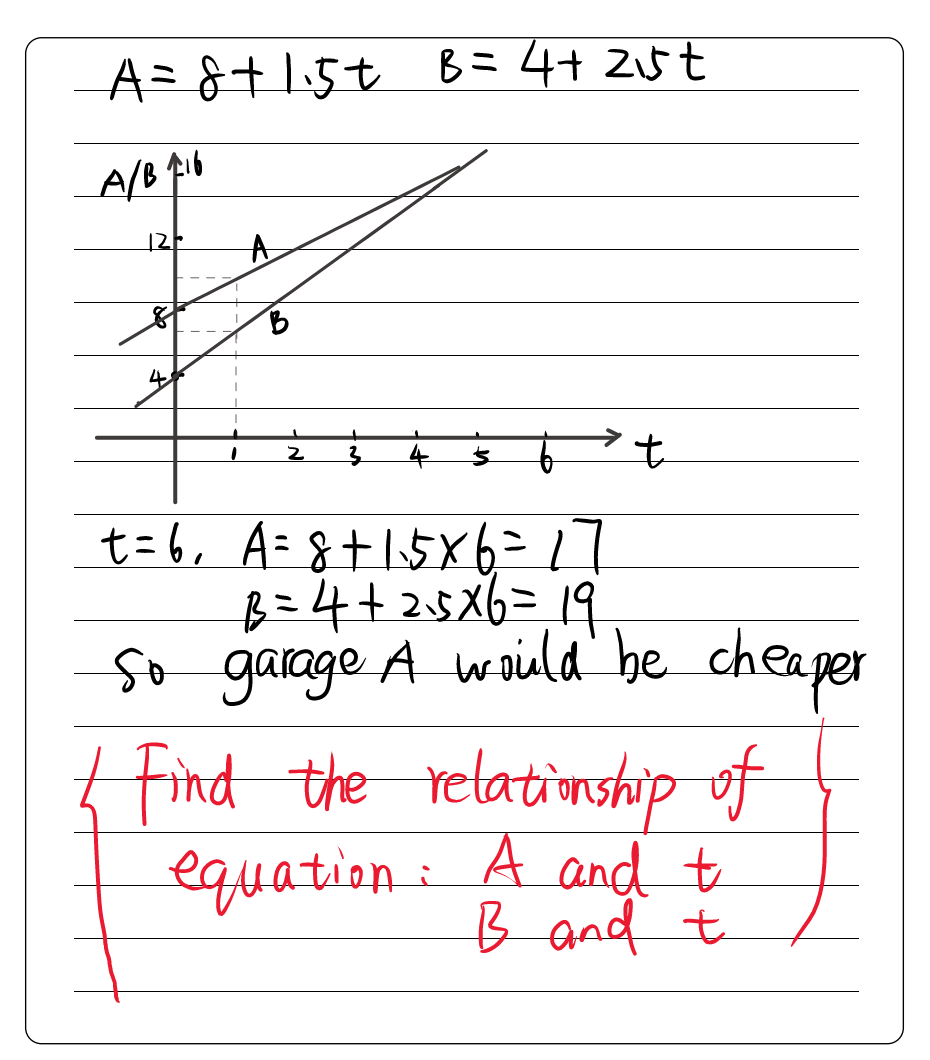 A = 8 + 1.5t B = 4 + 2.5t
A/B
16
12
A
8
B
4
1 2 3 4 5 6 t
t = 6, A = 8 + 1.5 × 6 = 17
B = 4 + 2.5 × 6 = 19
so garage A would be cheaper
Find the relationship of
equation : A and t
B and t